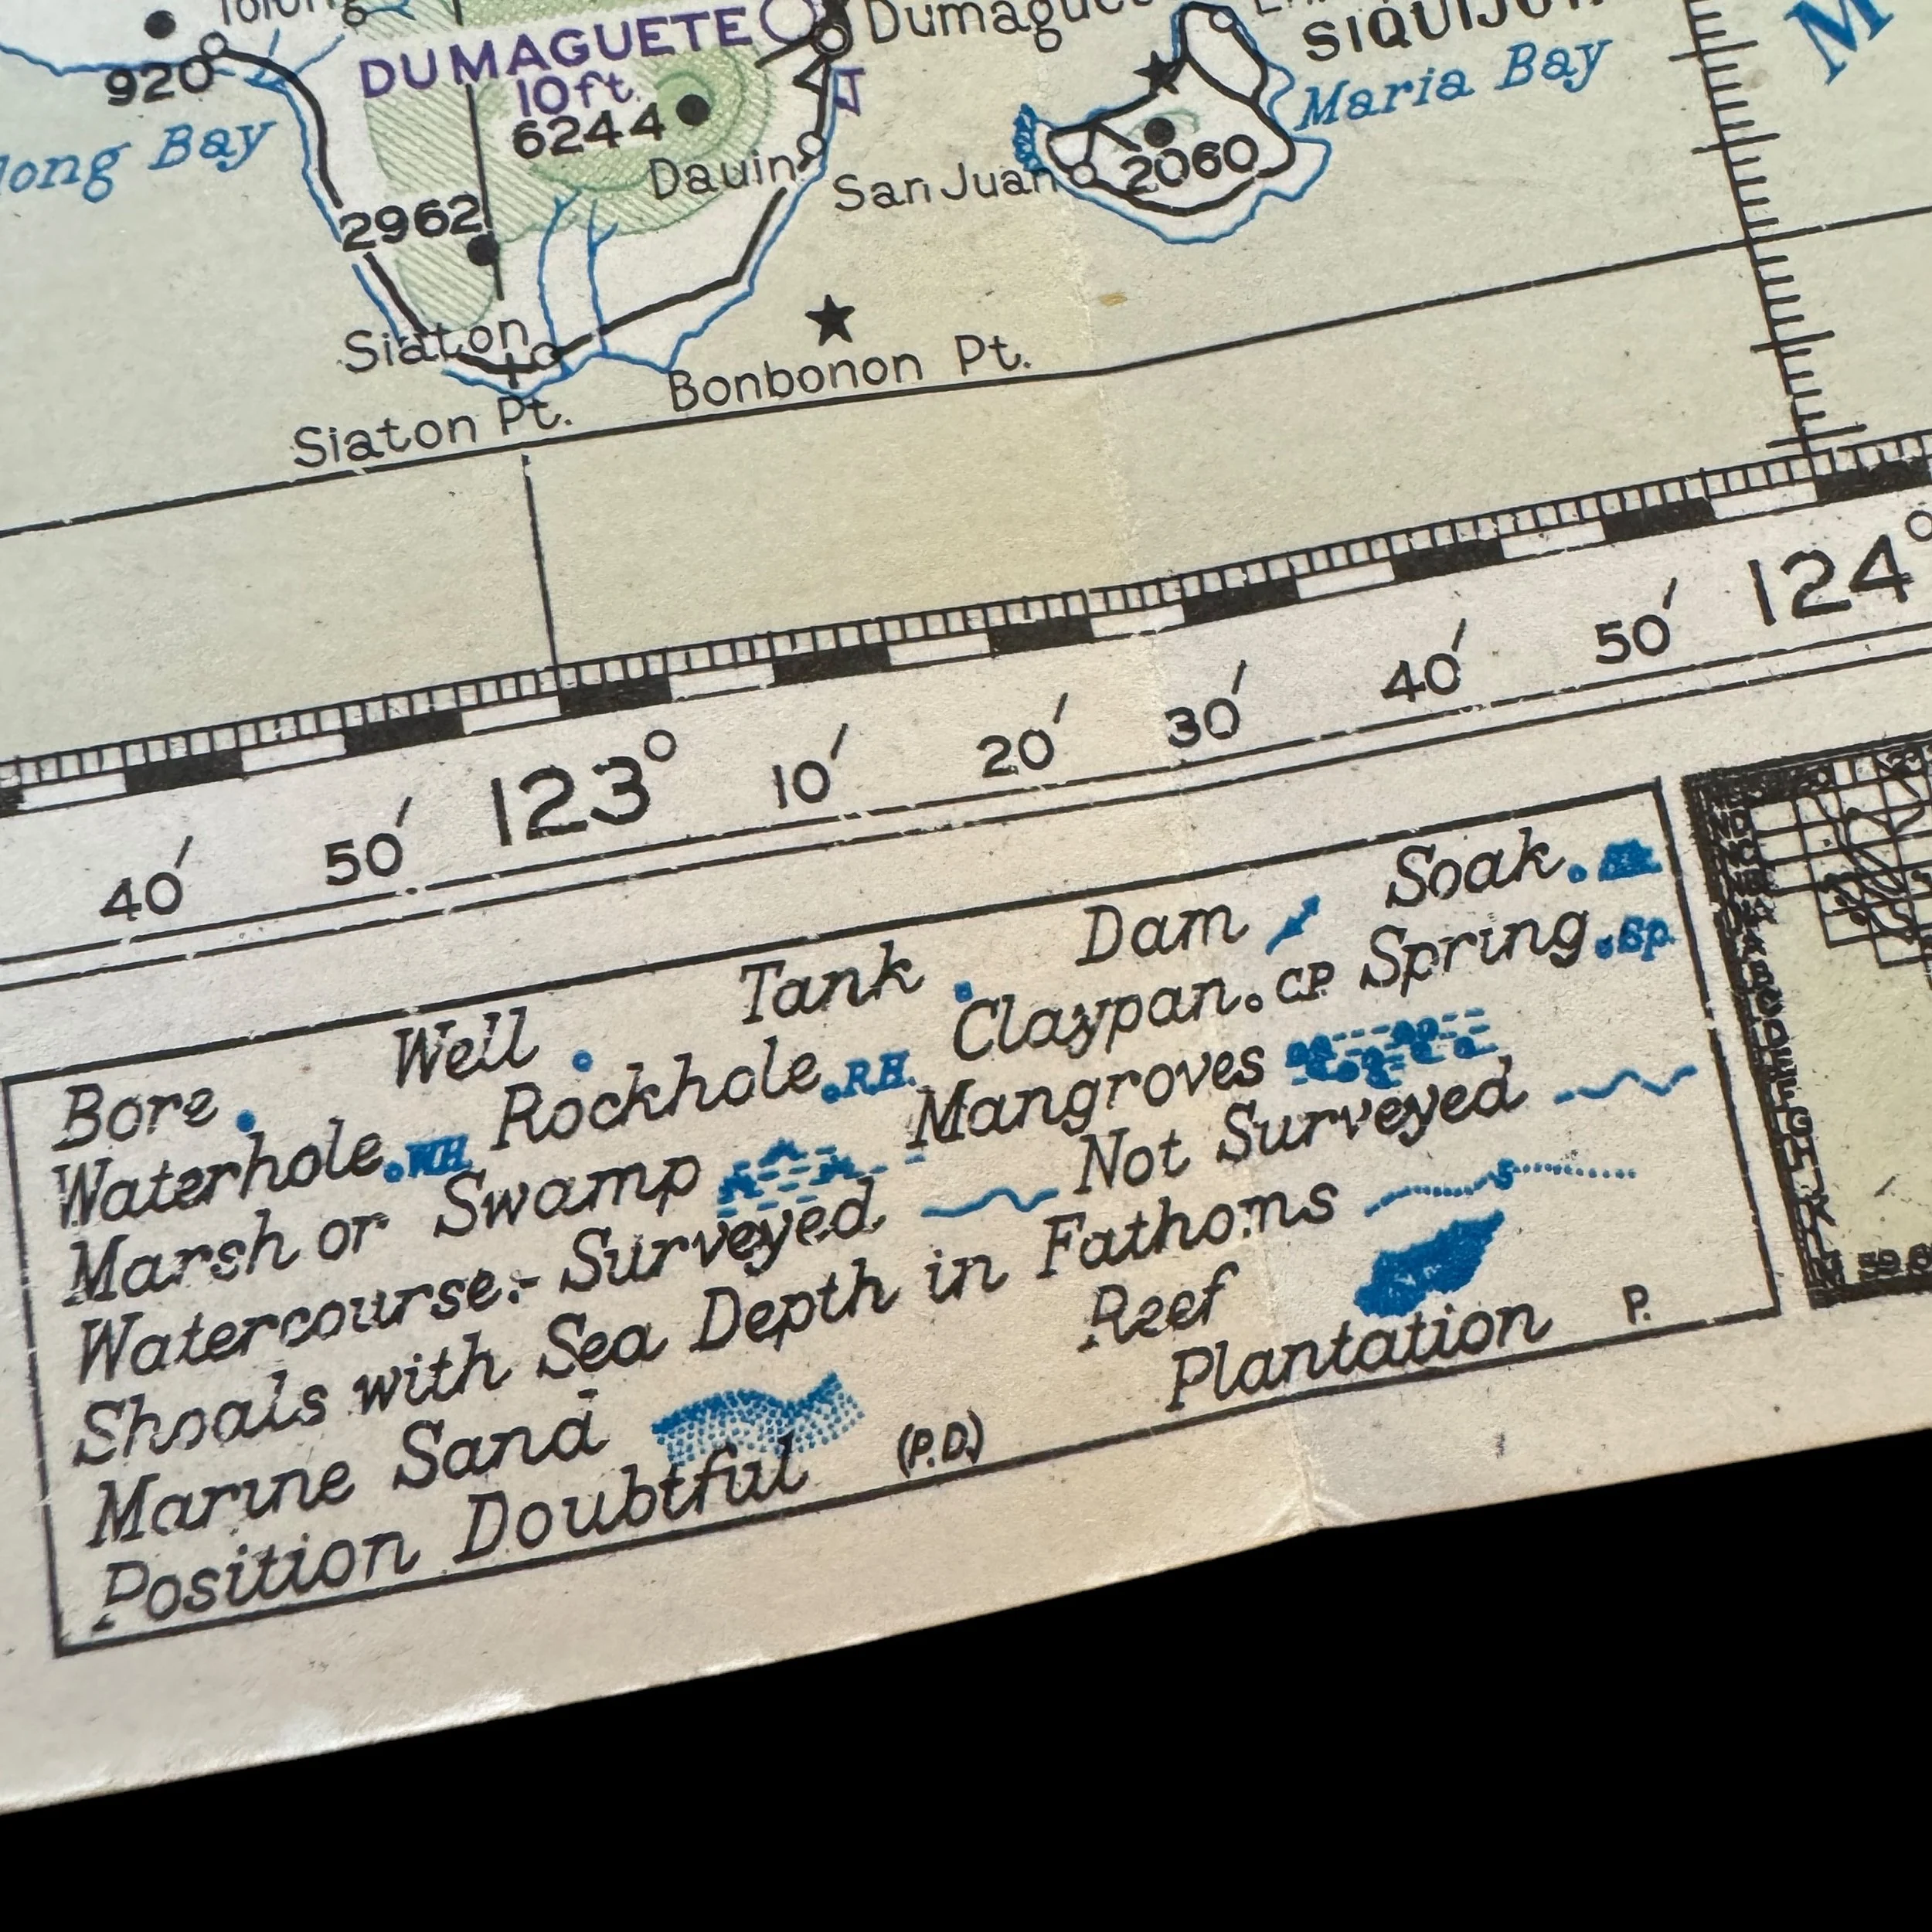 920
DUMAGUETE
10ft.
6244
Dauin
San Juan
2060
Maria Bay
2962
Siaton
Siaton Pt.
Bonbonon Pt.
40′ 50′ 123° 10′ 20′ 30′ 40′ 50′ 124°
Bore Well Tank Dam Soak
Waterhole WH Rockhole R.H. Claypan CP. Spring Sp.
Marsh or Swamp Mangroves
Watercourse:- Surveyed Not Surveyed
Shoals with Sea Depth in Fathoms 5
Marine Sand Reef
Position Doubtful (P.D.) Plantation P.